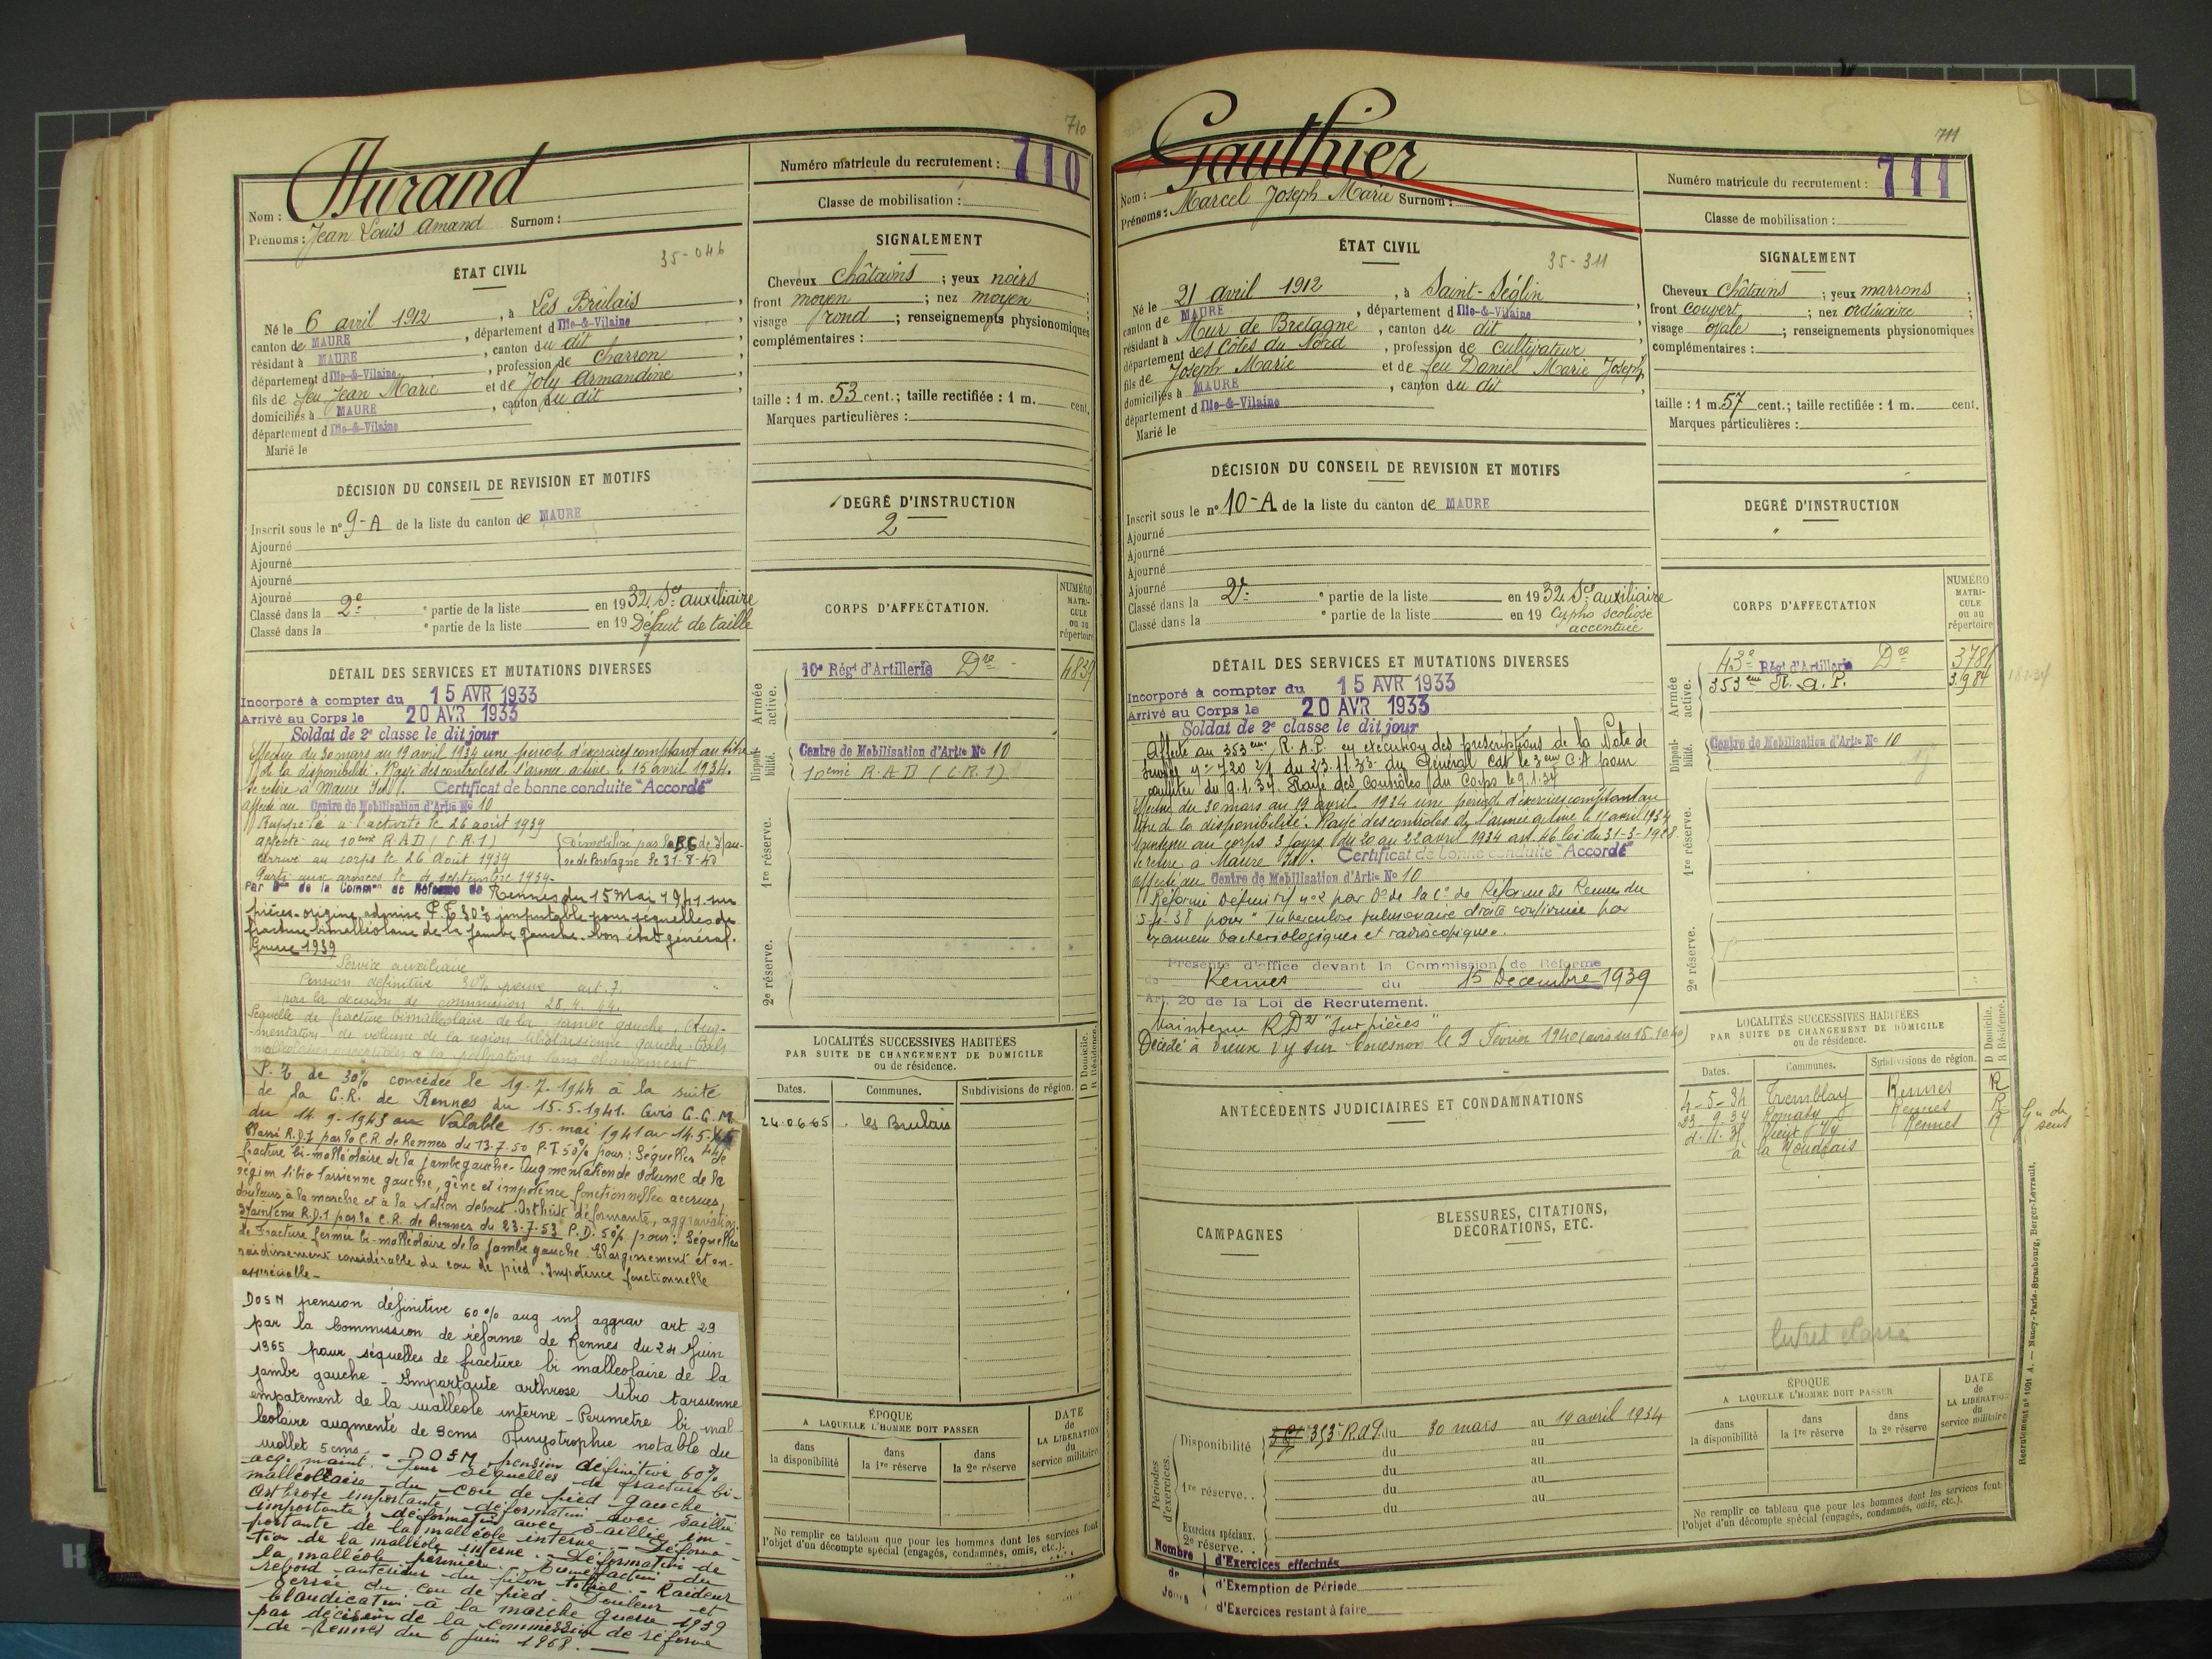 710
Durand
Nom :
Prénoms : Jean Louis Amand Surnom :
Numéro matricule du recrutement : 710
Classe de mobilisation :
35-046
ÉTAT CIVIL
Né le 6 avril 1912, à Les Brûlais,
canton de MAURE, département d Ille-&-Vilaine,
résidant à MAURE, canton du dit,
département d Ille-&-Vilaine, profession de charron
fils de feu Jean Marie et de Joly Armandine,
domiciliés à MAURE, canton du dit,
département d Ille-&-Vilaine
Marié le
SIGNALEMENT
Cheveux châtains ; yeux noirs ;
front moyen ; nez moyen ;
visage rond ; renseignements physionomiques
complémentaires :
taille : 1 m. 53 cent.; taille rectifiée : 1 m. cent.
Marques particulières :
DÉCISION DU CONSEIL DE REVISION ET MOTIFS
Inscrit sous le n° 9-A de la liste du canton de MAURE
Ajourné
Ajourné
Ajourné
Ajourné
Ajourné
Classé dans la 2e ° partie de la liste en 1932 Sce auxiliaire
Classé dans la ° partie de la liste en 19 Défaut de taille
DEGRÉ D'INSTRUCTION
2
CORPS D'AFFECTATION.
NUMÉRO MATRICULE ou au répertoire
DÉTAIL DES SERVICES ET MUTATIONS DIVERSES
Incorporé à compter du 15 AVR 1933
Arrivé au Corps le 20 AVR 1933
Soldat de 2e classe le dit jour
Effectue du 30 mars au 19 avril 1934 une période d'exercices comptant au titre
de la disponibilité. Rayé des contrôles de l'armée active le 15 avril 1934.
Se retire à Maure Certificat de bonne conduite "Accordé"
Affecté au Centre de Mobilisation d'Artie No 10
Rappelé à l'activité le 26 août 1939
affecté au 10ème R.A.D (C.R.1)
arrivé au corps le 26 Août 1939
Démobilisé par de Maure de Bretagne le 31-8-40
Parti aux armées le 4 septembre 1939.
Par Don de la Common de Réforme de Rennes du 15 Mai 1941 sur
pièces. origine admise P.T 30% imputable pour séquelles de
fracture bimalléolaire de la jambe gauche. bon état général.
Guerre 1939
Service auxiliaire
Pension définitive 30% art. 7.
par la décision de commission 28.4.44.
Séquelle de fracture bimalléolaire de la jambe gauche. Aug-
mentation de volume de la région tibiotarsienne gauche.
malléolaires à la palpation sans changement
P.T. de 30% concédée le 19.7.1944 à la suite
de la C.R. de Rennes du 15.5.1941. Avis C.C.M.
du 14 9-1943 Valable 15. mai 1941 au 14.5.44
Classé R.D.1 par la C.R. de Rennes du 13.7.50 P.T. 50% pour : Séquelles de
fracture bi-malléolaire de la jambe gauche - Augmentation de volume de la
région tibio tarsienne gauche, gêne et impotence fonctionnelles accrues,
douleurs, à la marche et à la station debout. Arthrite déformante, aggravation.
Maintenu R.D.1 par la C.R. de Rennes du 23-7-53 P.D. 50% pour : Séquelles
de fracture fermée bi-malléolaire de la jambe gauche. Elargissement et en-
raidissement considérable du cou de pied. Impotence fonctionnelle
appréciable -
DOSM pension définitive 60% aug inf aggrav art 29
par la Commission de réforme de Rennes du 24 Juin
1965 pour séquelles de fracture bi malléolaire de la
jambe gauche - Importante arthrose tibio tarsienne
empatement de la malléole interne - Perimetre bi mal
léolaire augmenté de 3cms Amyotrophie notable du
mollet 5cms. - DOSM pension définitive 60%
acq. maint. Pour séquelles de fracture bi-
malléolaire du cou de pied gauche
Arthrose importante déformation avec saillie
importante, déformation avec saillie im-
portante de la malléole interne - Déforma-
tion de la malléole interne. - Déformation de
la malléole péronière. Tuméfaction du
rebord antérieur du pilon tibial. - Raideur
serrée du cou de pied - Douleur et
claudication à la marche guerre 1939
par décision de la Commission de réforme
de Rennes du 6 Juin 1968.
Armée active.
10e Régt d'Artillerie Dre - 4839
Disponibilité.
Centre de Mobilisation d'Artie No 10
10ème R.A.D (C.R.1)
1re réserve.
2e réserve.
LOCALITÉS SUCCESSIVES HABITÉES
PAR SUITE DE CHANGEMENT DE DOMICILE
ou de résidence.
D Domicile. R Résidence.
Dates. Communes. Subdivisions de région.
24.06.65 . Les Brulais
ÉPOQUE
A LAQUELLE L'HOMME DOIT PASSER
dans la disponibilité
dans la 1re réserve
dans la 2e réserve
DATE de LA LIBÉRATION du service militaire
Ne remplir ce tableau que pour les hommes dont les services font
l'objet d'un décompte spécial (engagés, condamnés, omis, etc.).
711
Gauthier
Nom :
Prénoms : Marcel Joseph Marie Surnom :
Numéro matricule du recrutement : 711
Classe de mobilisation :
ÉTAT CIVIL
35-311
Né le 21 avril 1912, à Saint-Séglin,
canton de MAURE, département d Ille-&-Vilaine,
résidant à Mur de Bretagne, canton du dit,
département des Côtes du Nord, profession de cultivateur
fils de Joseph Marie et de feu Daniel Marie Joseph,
domiciliés à MAURE, canton du dit,
département d Ille-&-Vilaine
Marié le
SIGNALEMENT
Cheveux châtains ; yeux marrons ;
front couvert ; nez ordinaire ;
visage ovale ; renseignements physionomiques
complémentaires :
taille : 1 m. 57 cent.; taille rectifiée : 1 m. cent.
Marques particulières :
DÉCISION DU CONSEIL DE REVISION ET MOTIFS
Inscrit sous le n° 10-A de la liste du canton de MAURE
Ajourné
Ajourné
Ajourné
Ajourné
Classé dans la 2e ° partie de la liste en 1932 Sce auxiliaire
Classé dans la ° partie de la liste en 19 Cypho scoliose
accentuée
DEGRÉ D'INSTRUCTION
CORPS D'AFFECTATION
NUMÉRO MATRICULE ou au répertoire
DÉTAIL DES SERVICES ET MUTATIONS DIVERSES
Incorporé à compter du 15 AVR 1933
Arrivé au Corps le 20 AVR 1933
Soldat de 2e classe le dit jour
Affecté au 353ème R.A.P. en exécution des prescriptions de la Note de
Service n° 720 2/1 du 23.11.33 du Général Cdt le 3ème C.A pour
compter du 9.1.34. Rayé des Contrôles du Corps le 9.1.34
Effectue du 30 mars au 19 avril 1934 une période d'exercices comptant au
titre de la disponibilité. Rayé des contrôles de l'armée active le avril 1934
Maintenu au corps 3 jours du 20 au 22 avril 1934 art. 46 loi du 31-3-1928.
Se retire à Maure Certificat de bonne conduite "Accordé"
Affecté au Centre de Mobilisation d'Artie No 10
Réformé Définitif n°2 par Don de la Con de Réforme de Rennes du
38 pour "Tuberculose pulmonaire droite confirmée par
examen bactériologiques et radioscopique".
Présenté d'office devant la Commission de Réforme
de Rennes du 15 Décembre 1939
Art. 20 de la Loi de Recrutement.
Maintenu RD2 "sur pièces"
Décédé à Vieux Vy sur Couesnon le 9 Février 1940 (avis du 15.10.40)
Armée active.
43e Régt d'Artillerie Dre 3781
353ème R.A.P. 3.984
Disponibilité.
Centre de Mobilisation d'Artie No 10
1re réserve.
2e réserve.
LOCALITÉS SUCCESSIVES HABITÉES
PAR SUITE DE CHANGEMENT DE DOMICILE
ou de résidence.
D Domicile. R Résidence.
Dates. Communes. Subdivisions de région.
4-5-34 Tremblay Rennes R
23.9.34 Romazy Rennes R
Vieux Vy Rennes R
à la
ANTÉCÉDENTS JUDICIAIRES ET CONDAMNATIONS
CAMPAGNES
BLESSURES, CITATIONS,
DÉCORATIONS, ETC.
livret classé
Périodes d'exercices.
Disponibilité 353e R.A.P. du 30 mars au 19 avril 1934
du au
du au
1re réserve.. du au
du au
Exercices spéciaux.
2e réserve. .
Nombre de Jours
d'Exercices effectués
d'Exemption de Période
d'Exercices restant à faire
ÉPOQUE
A LAQUELLE L'HOMME DOIT PASSER
dans la disponibilité
dans la 1re réserve
dans la 2e réserve
DATE de LA LIBÉRATION du service militaire
Ne remplir ce tableau que pour les hommes dont les services font
l'objet d'un décompte spécial (engagés, condamnés, omis, etc.).
Recrutement n° 1001 A. — Nancy-Paris-Strasbourg, Berger-Levrault.